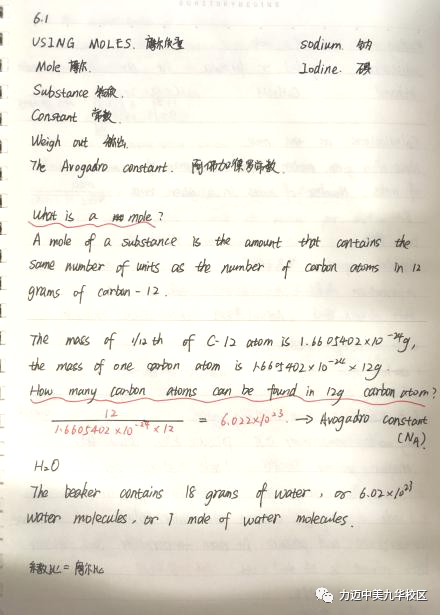 6.1
USING MOLES. 摩尔质量 sodium. 钠
Mole 摩尔. Iodine. 碘
Substance 物质.
Constant 常数.
Weigh out 称出.
The Avogadro constant. 阿伏加德罗常数.
What is a mole?
A mole of a substance is the amount that contains the
same number of units as the number of carbon atoms in 12
grams of carbon-12.
The mass of 1/12 th of C-12 atom is 1.6605402×10⁻²⁴g,
the mass of one carbon atom is 1.6605402×10⁻²⁴ × 12g.
How many carbon atoms can be found in 12g carbon atom?
12 / 1.6605402×10⁻²⁴ × 12 = 6.022×10²³. → Avogadro constant
(NA)
H₂O
The beaker contains 18 grams of water, or 6.02×10²³
water molecules, or 1 mole of water molecules.
系数比 = 摩尔比
力迈中美九华校区